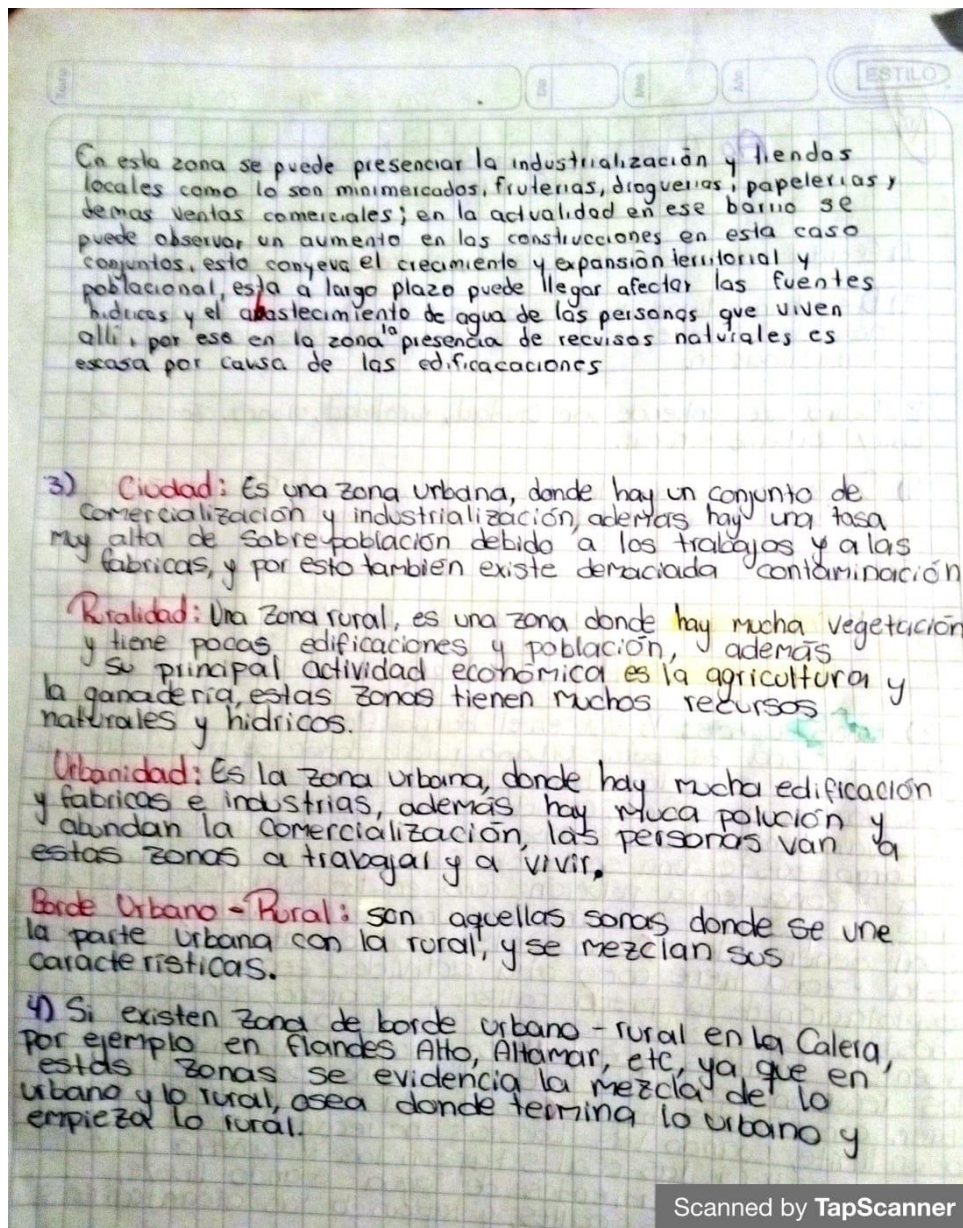 Tema
Día
Mes
Año
ESTILO
En esta zona se puede presenciar la industrialización y tiendas
locales como lo son minimercados, fruterias, droguerias, papelerias y
demas ventas comerciales; en la actualidad en ese barrio se
puede observar un aumento en las construcciones en esta caso
conjuntos, esto conyeva el crecimiento y expansión territorial y
poblacional, esta a largo plazo puede llegar afectar las fuentes
hidricas y el abastecimiento de agua de las personas que viven
alli, por eso en la zona la presencia de recursos naturales es
escasa por causa de las edificacaciones
3) Ciudad: Es una zona urbana, donde hay un conjunto de
comercialización y industrialización, además hay una tasa
muy alta de sobrepoblación debido a los trabajos y a las
fabricas, y por esto tambien existe demaciada contaminación
Ruralidad: Una zona rural, es una zona donde hay mucha vegetación
y tiene pocas edificaciones y población, además
su principal actividad económica es la agricultura y
la ganadería, estas zonas tienen muchos recursos
naturales y hidricos.
Urbanidad: Es la zona urbana, donde hay mucha edificación
y fabricas e industrias, además hay muca polución y
abundan la comercialización, las personas van a
estas zonas a trabajar y a vivir.
Borde Urbano - Rural: son aquellas sonas donde se une
la parte urbana con la rural, y se mezclan sus
características.
4) Si existen zona de borde urbano - rural en la Calera,
por ejemplo en flandes Alto, Altamar, etc, ya que en
estas zonas se evidencia la mezcla de lo
urbano y lo rural, osea donde termina lo urbano y
empieza lo rural.
Scanned by TapScanner